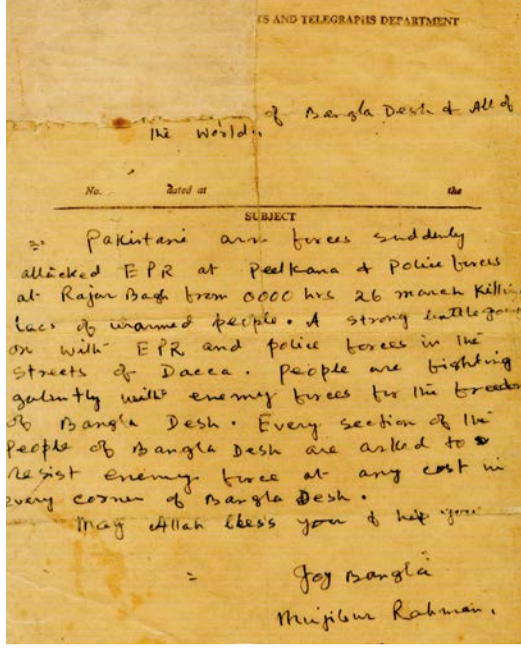 TS AND TELEGRAPHS DEPARTMENT
of Bangla Desh & All of
the World.
No. dated at the
SUBJECT
Pakistani arm forces suddenly
attacked EPR at Peelkana & Police forces
at Rajar Bagh from 0000 hrs 26 march Killin
lacs of unarmed people. A strong battle goin
on with EPR and police forces in the
streets of Dacca. People are fighting
galantly with enemy forces for the freedo
of Bangla Desh. Every section of the
People of Bangla Desh are asked to
resist enemy force at any cost in
every corner of Bangla Desh.
May Allah bless you & help you
Joy Bangla
Mujibur Rahman.